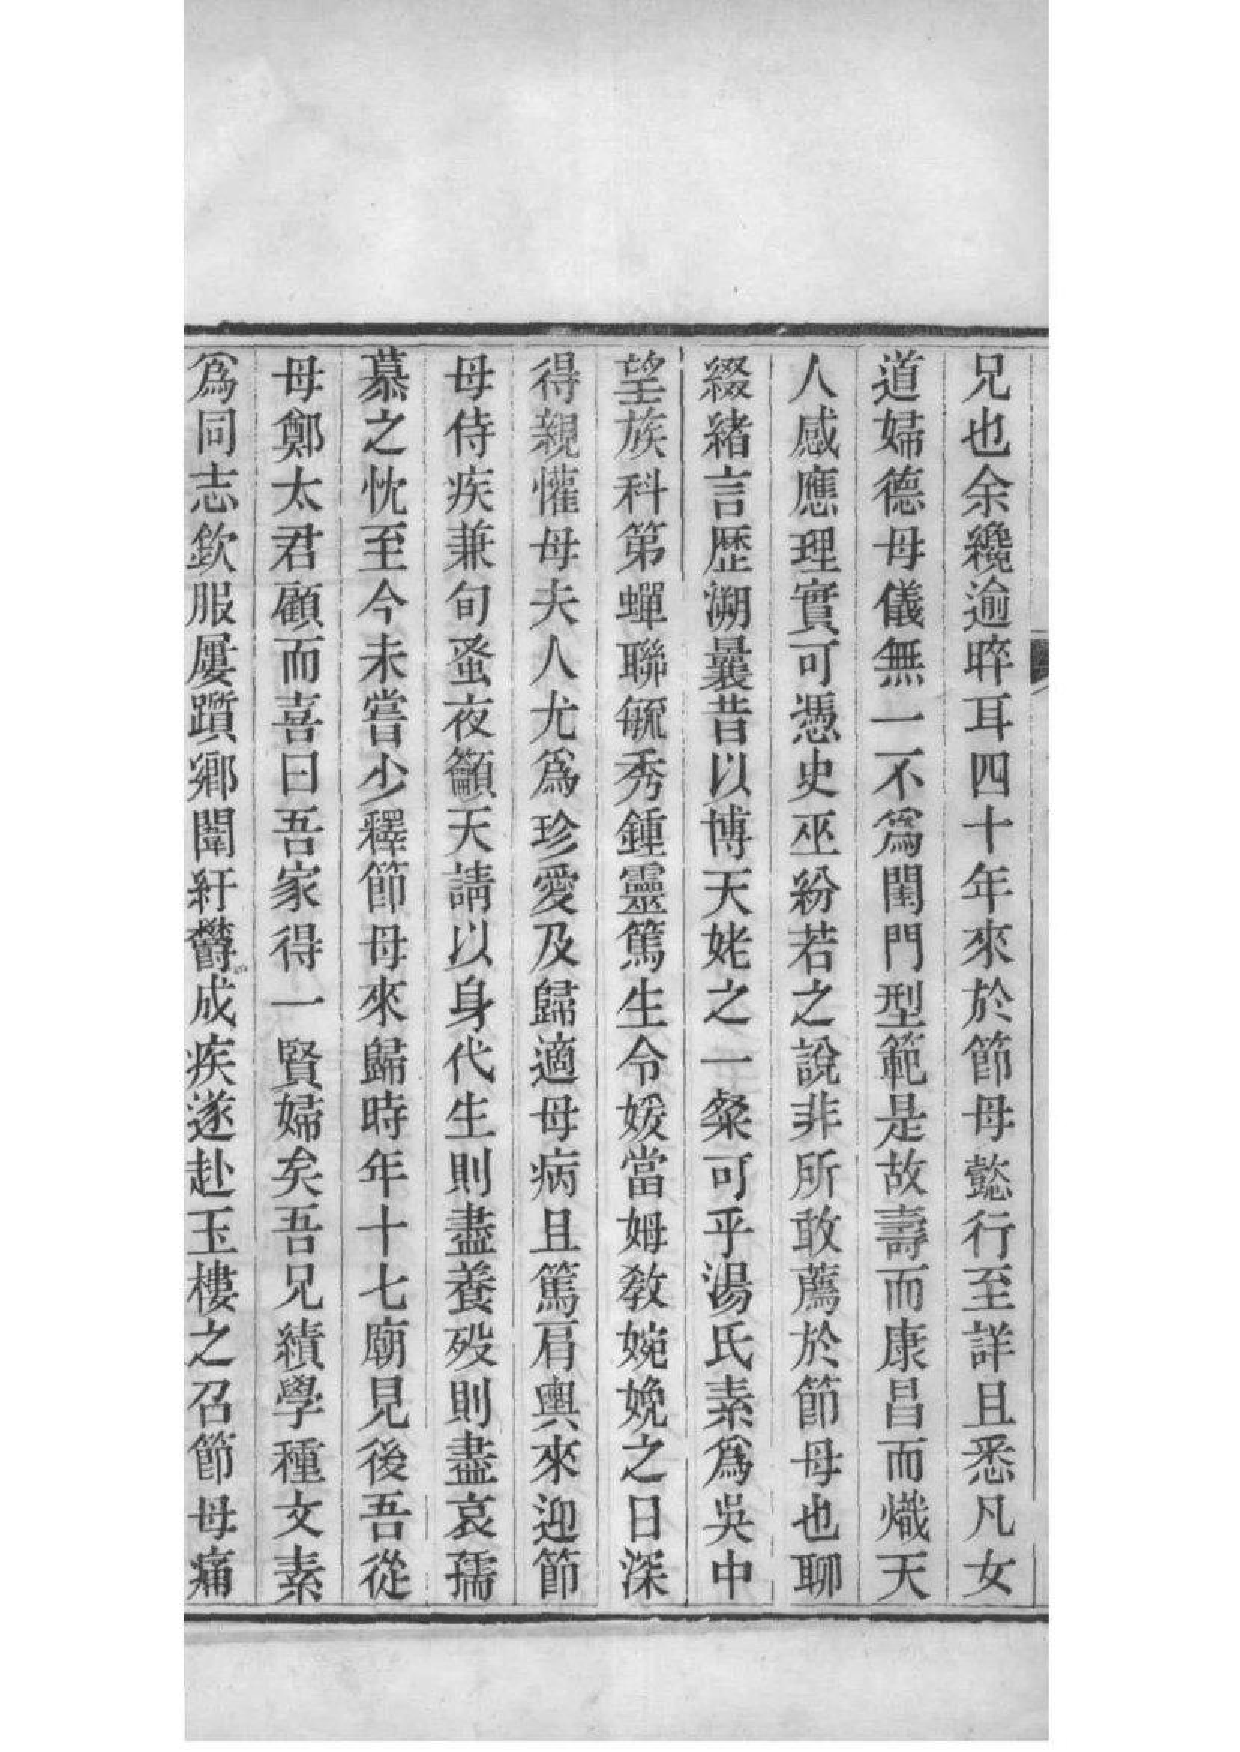 兄也余纔逾晬耳四十年來於節母懿行至詳且悉凡女
道婦德母儀無一不爲閨門型範是故壽而康昌而熾天
人感應理實可憑史巫紛若之說非所敢薦於節母也聊
綴緒言歷溯曩昔以博天姥之一粲可乎湯氏素爲吳中
望族科第蟬聯毓秀鍾靈篤生令媛當姆敎婉娩之日深
得親懽母夫人尤爲珍愛及歸適母病且篤肩輿來迎節
母侍疾兼旬蚤夜籲天請以身代生則盡養殁則盡哀孺
慕之忱至今未嘗少釋節母來歸時年十七廟見後吾從
母鄭太君顧而喜曰吾家得一賢婦矣吾兄績學種文素
爲同志欽服屢躓鄉闈紆鬱成疾遂赴玉樓之召節母痛